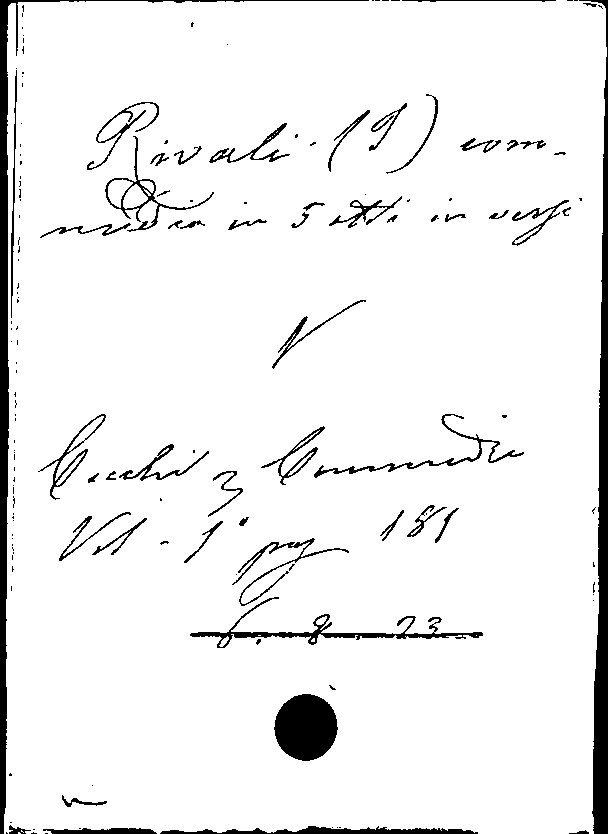 Rivali - (I) com-
media in 5 atti in versi
V
Cecchi Commedie
Vol - 1° pag 181
6. 8. 23